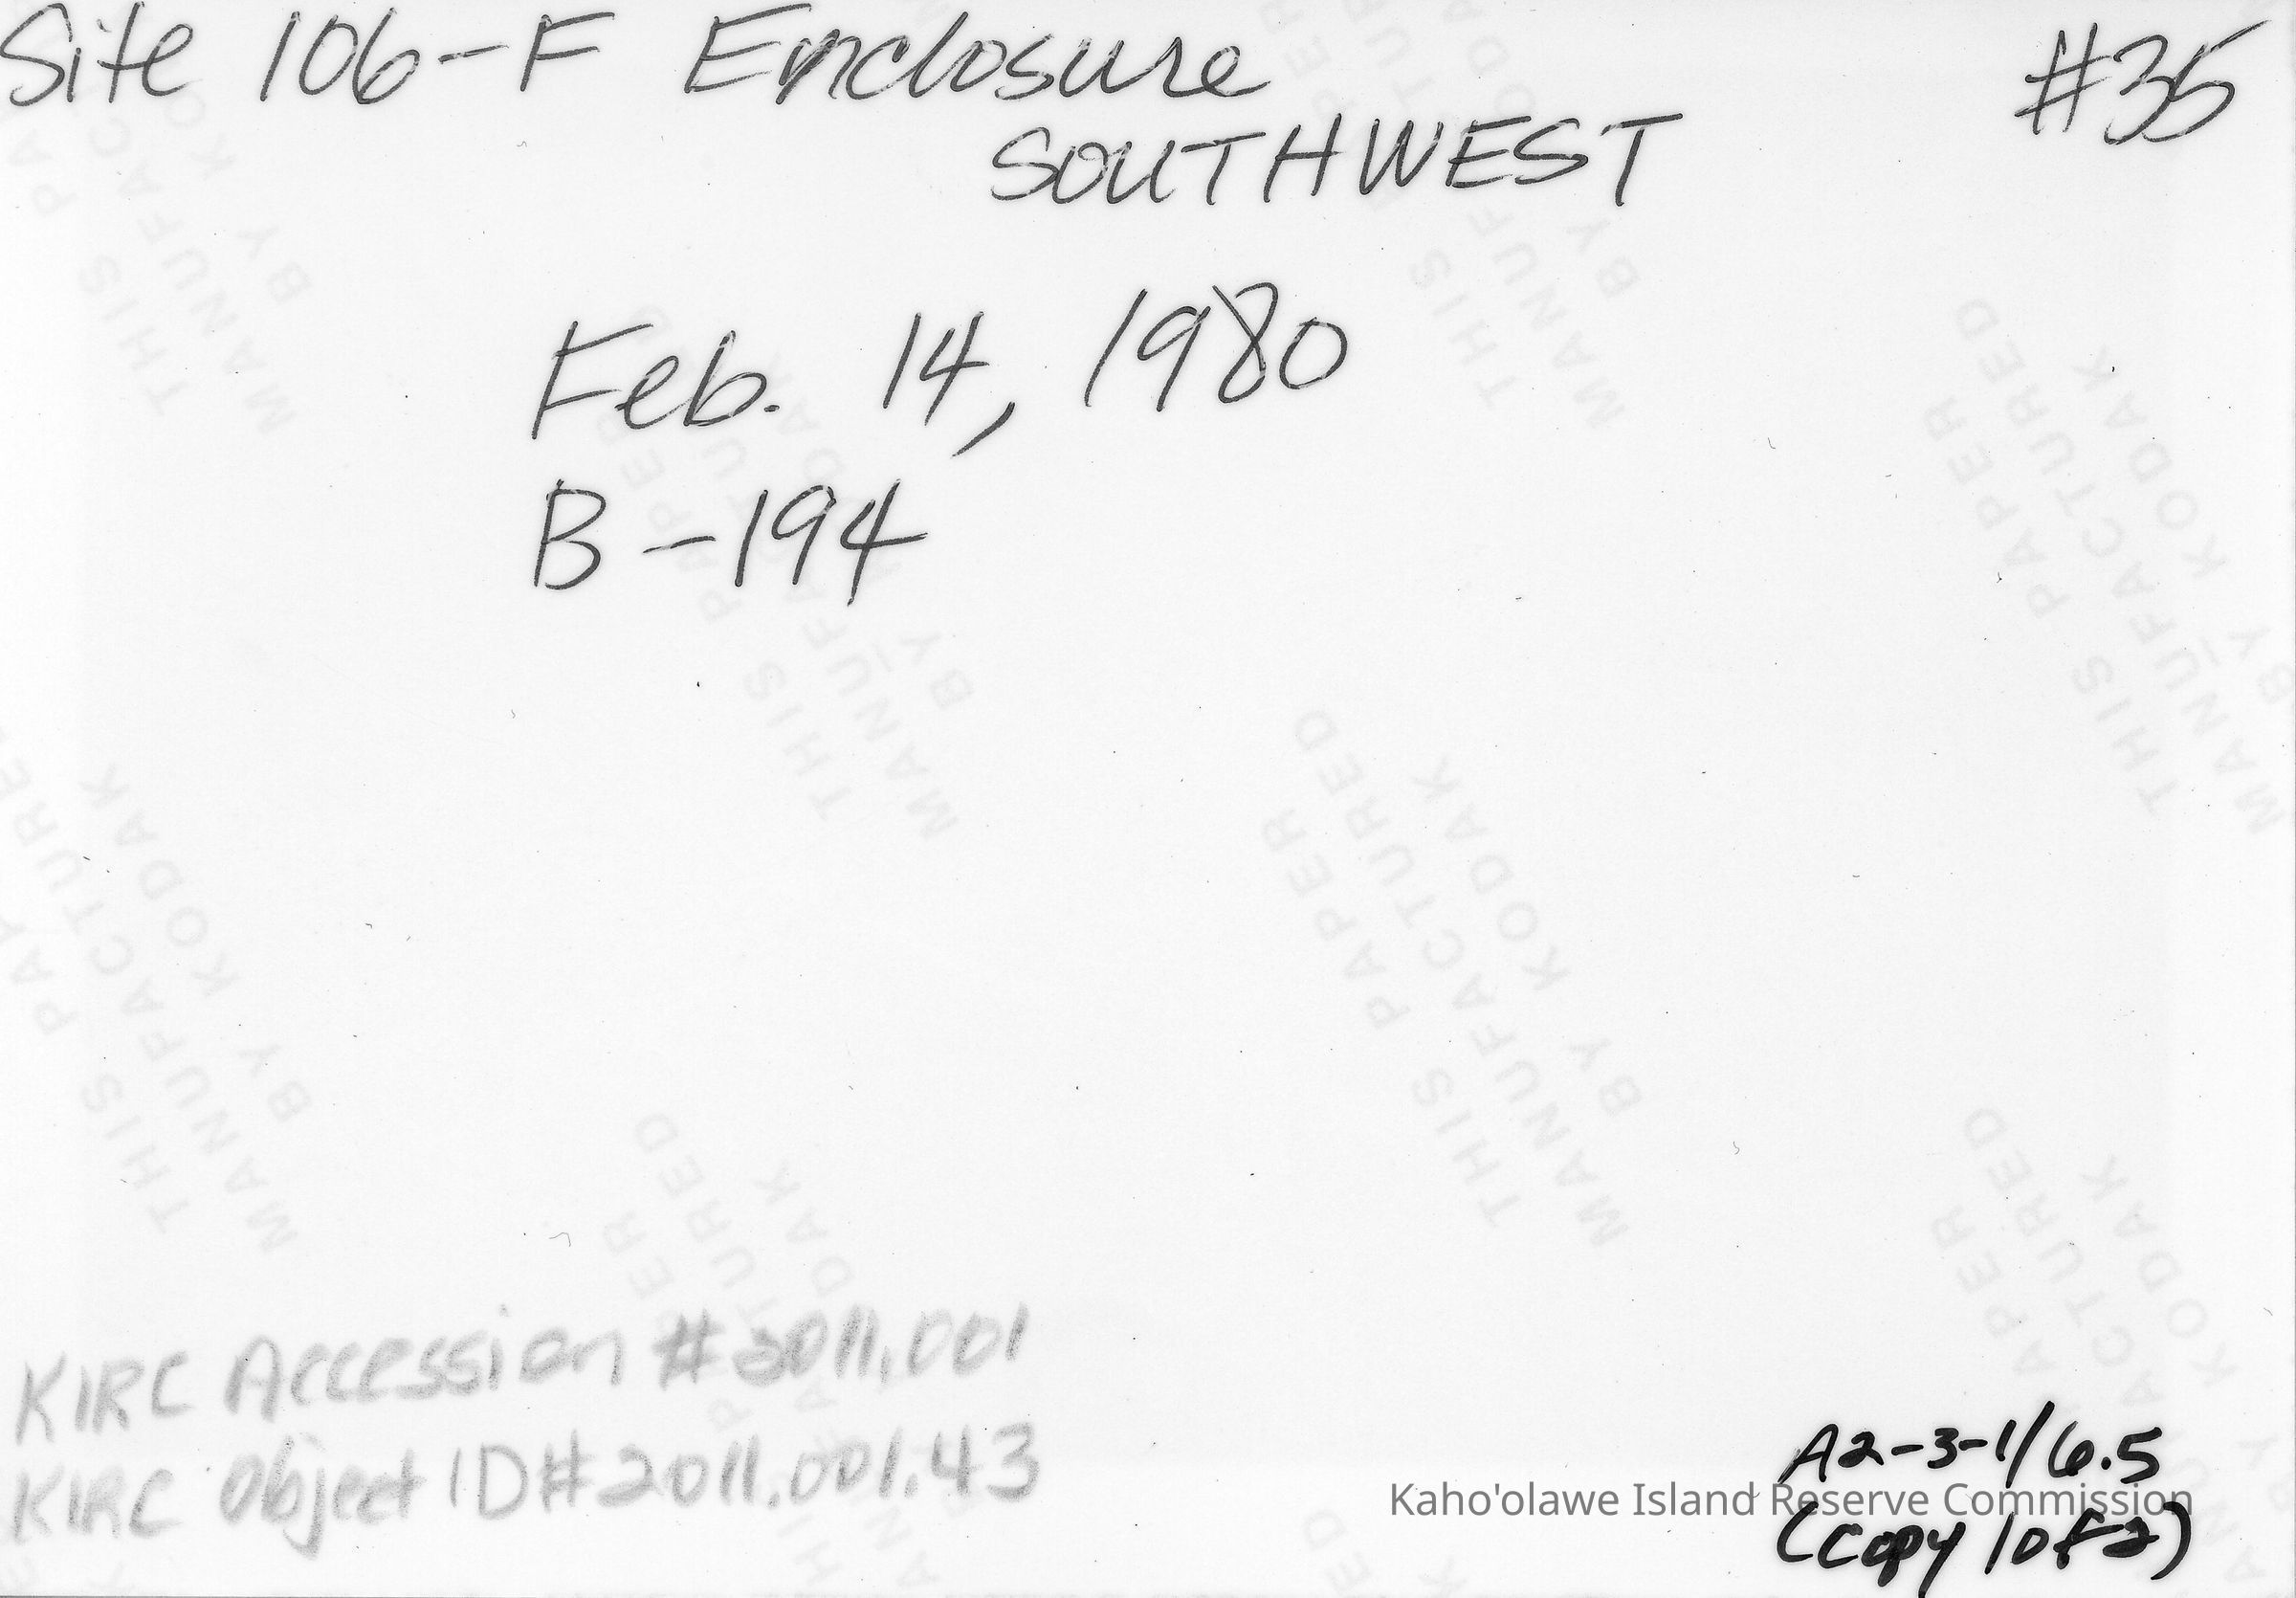 Site 106-F Enclosure #35
SOUTHWEST
Feb. 14, 1980
B-194
KIRC Accession #2011.001
KIRC Object ID#2011.001.43
A2-3-1/6.5
Kaho'olawe Island Reserve Commission
(copy 1 of 2)
THIS PAPER
MANUFACTURED
BY KODAK